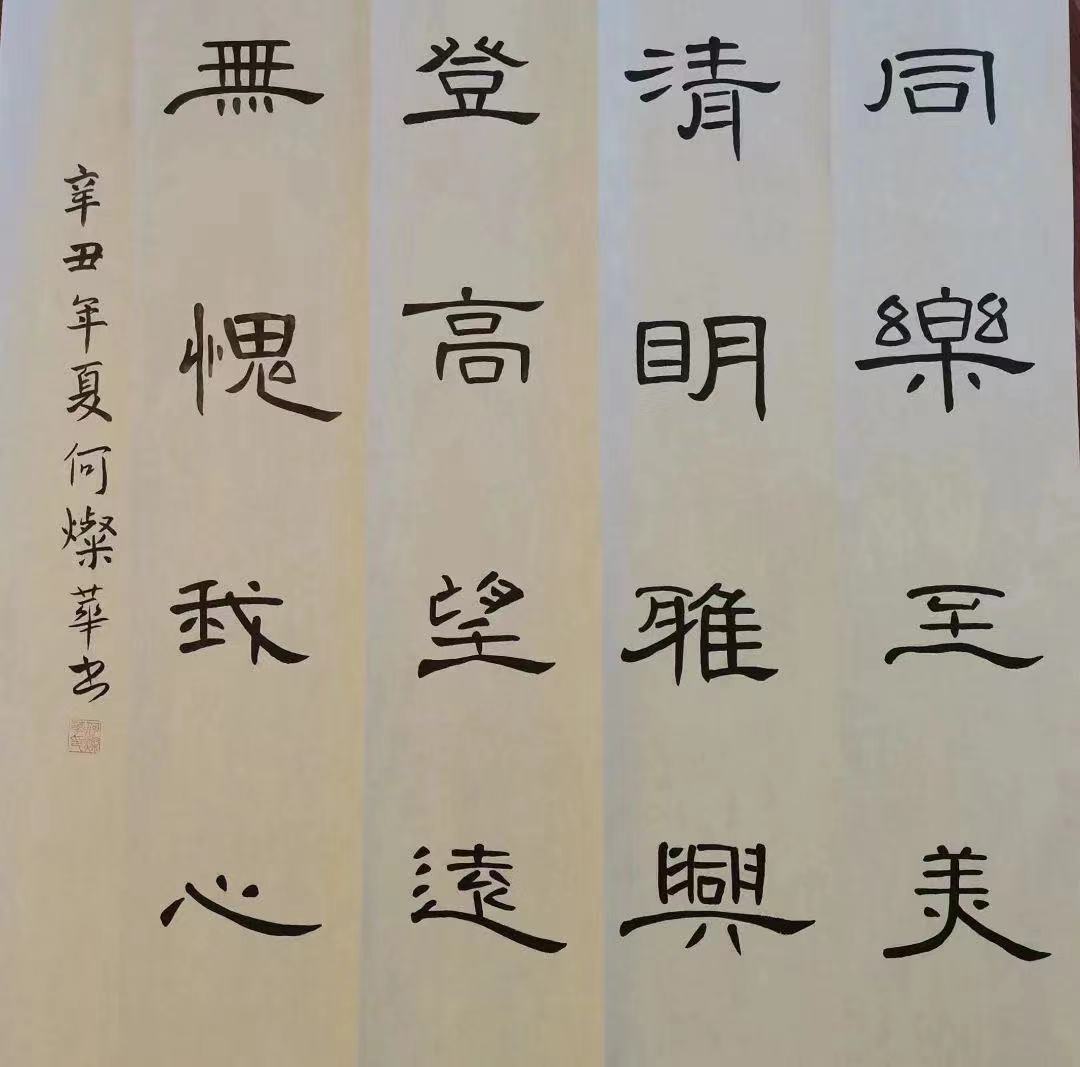 同樂至美
清明雅興
登高望遠
無愧我心
辛丑年夏何燦華书